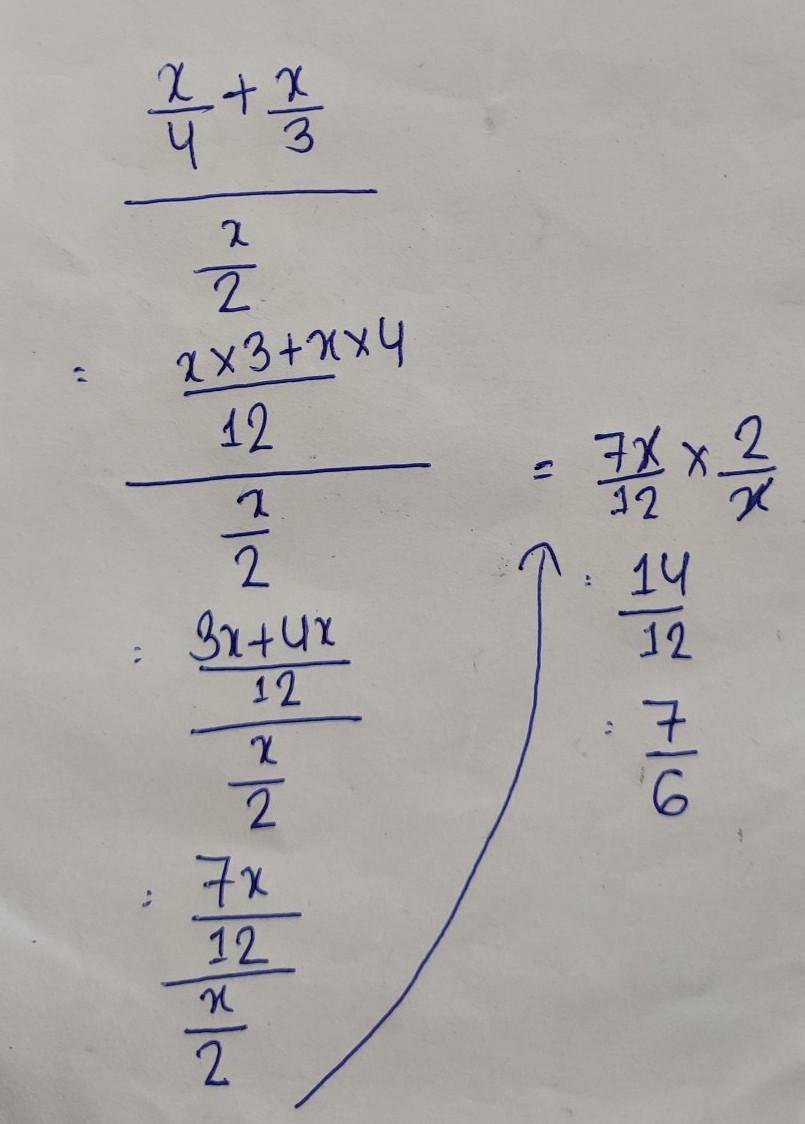 x/4 + x/3
x/2
= x×3+x×4
12
x/2
= 3x+4x
12
x/2
= 7x
12
x/2
= 7x/12 × 2/x
= 14/12
= 7/6